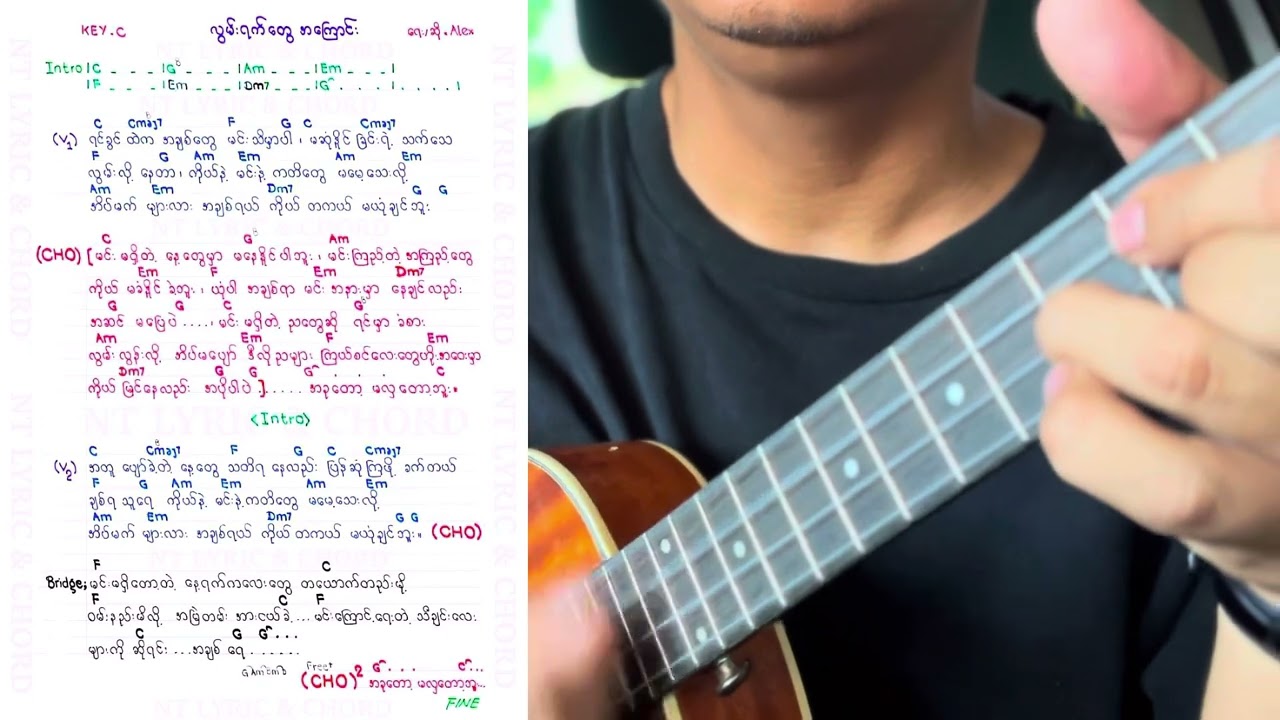 KEY.C လွမ်းရက်တွေ အကြောင်း ရေး/ဆို.Alex
Intro |C _ _ _ |G _ _ _ |Am _ _ _ |Em _ _ _ |
|F _ _ _ |Em _ _ _ |Dm7 _ _ _ |G . . . | . . . . |
C Cmaj7 F G C Cmaj7
(V1) ရင်ခွင် ထဲက အချစ်တွေ မင်းသိမှာပါ ၊ မဆုံနိူင် ခြင်းရဲ့ သက်သေ
F G Am Em Am Em
လွမ်းလို့ နေတာ ၊ ကိုယ်နဲ့ မင်းနဲ့ ကတိတွေ မမေ့သေးလို့
Am Em Dm7 G G
အိပ်မက် များလား အချစ်ရယ် ကိုယ် တကယ် မယုံချင်ဘူး
C G Am
(CHO) [ မင်း မရှိတဲ့ နေ့တွေမှာ မနေနိူင်ပါဘူး ၊ မင်းကြည့်တဲ့ အကြည့်တွေ
Em F Em Dm7
ကိုယ် မခံနိူင် ခဲ့ဘူး ၊ ယုံပါ အချစ်ရာ မင်း အနားမှာ နေချင်လည်း
G G C G
အဆင် မပြေပဲ ...., မင်းမရှိတဲ့ ညတွေဆို ရင်မှာ ခံစား
Am Em F Em
လွမ်း လွန်းလို့ အိပ်မပျော် ဒီလိုညများ ကြယ်စင်လေးတွေဟိုးအဝေးမှာ
Dm7 G G G C
ကိုယ် မြင်နေလည်း အပိုပါပဲ ]..... အခုတော့ မလှတော့ဘူး။
<Intro>
C Cmaj7 F G C Cmaj7
(V2) အတူ ပျော်ခဲ့တဲ့ နေ့တွေ သတိရ နေလည်း ပြန်ဆုံကြဖို့ ခက်တယ်
F G Am Em Am Em
ချစ်ရ သူရေ ကိုယ်နဲ့ မင်းနဲ့ကတိတွေ မမေ့သေးလို့
Am Em Dm7 G G
အိပ်မက် များလား အချစ်ရယ် ကိုယ် တကယ် မယုံချင်ဘူး။ (CHO)
F C
Bridge; မင်းမရှိတော့တဲ့ နေ့ရက်ကလေးတွေ တယောက်တည်းမို့
F C F
ဝမ်းနည်းမိလို့ အမြဲတမ်း အားငယ်ခဲ့ ... မင်းကြောင့်ရေးတဲ့ သီချင်းလေး
C G G...
များကို ဆိုရင်း ...အချစ် ရေ .......
Free+ G... C...
(CHO)² အခုတော့ မလှတော့ဘူး...
FINE
NT LYRIC & CHORD